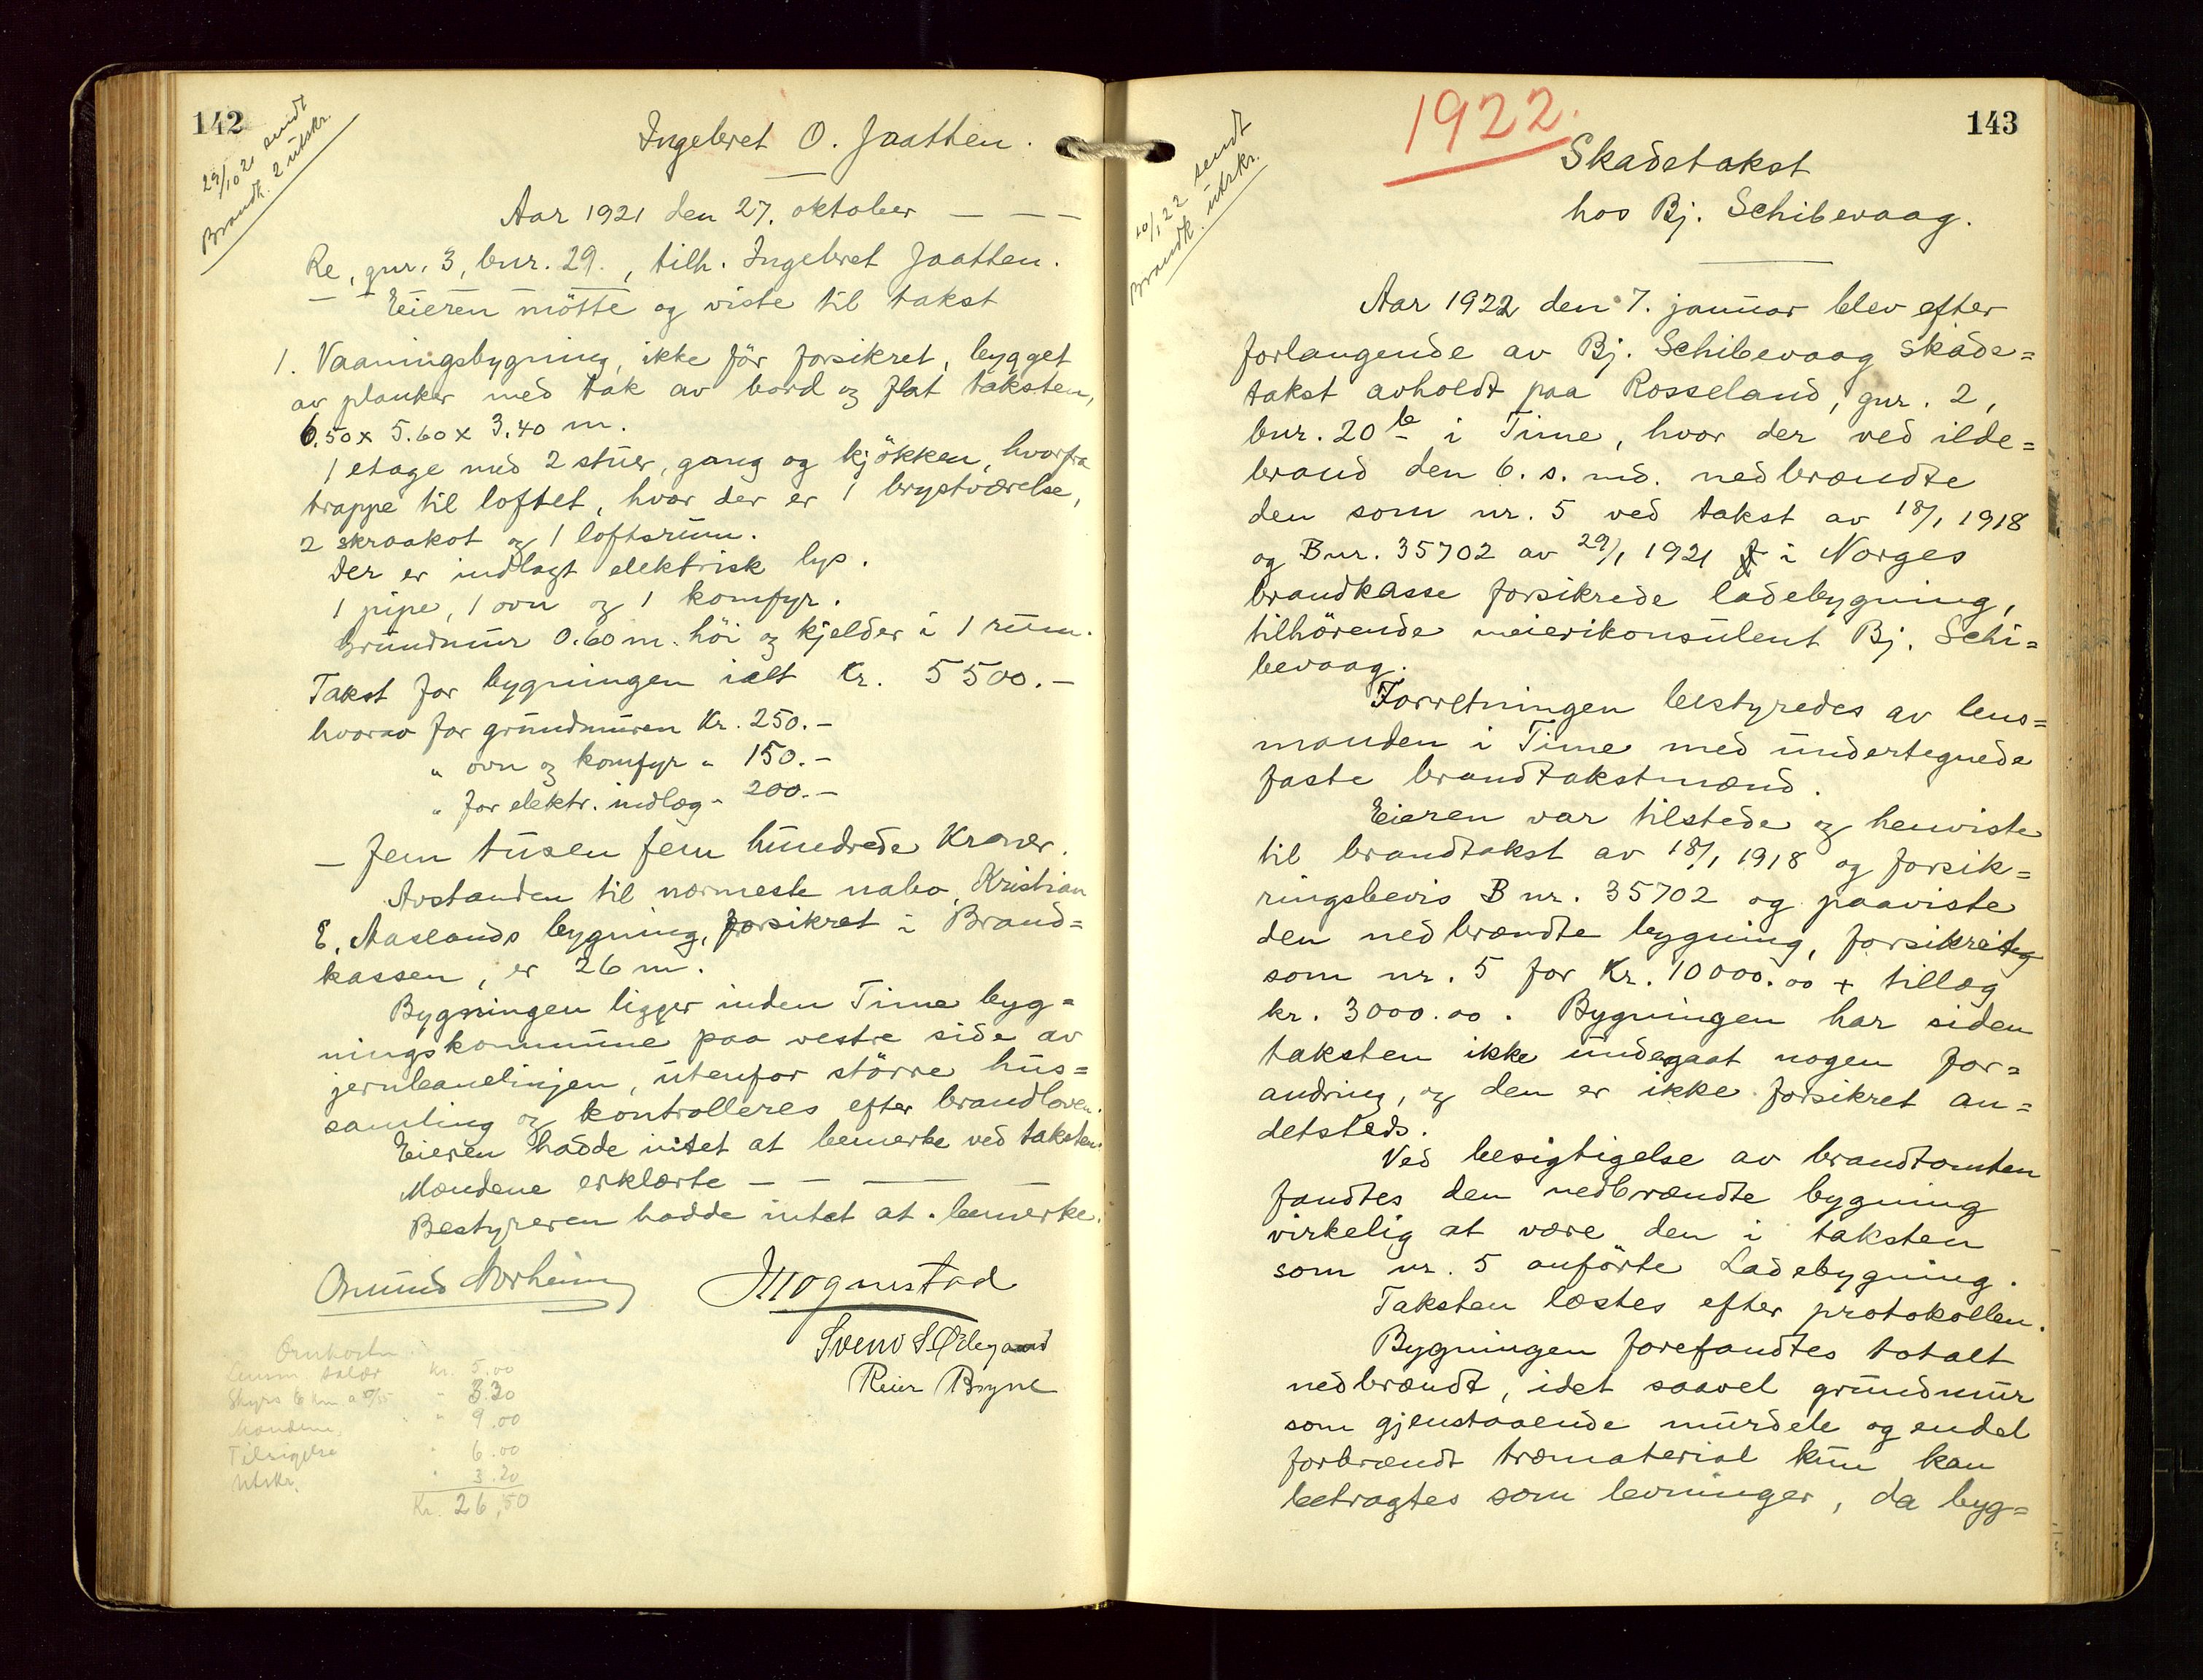 142
29/10 21 sendt
Brandk. 2 utskr.
Ingebret O. Jaatten.
Aar 1921 den 27. oktober — — —
Re, gnr. 3, bnr. 29., tilh. Ingebret Jaatten.
Eieren mötte og viste til takst
1. Vaaningsbygning, ikke för forsikret, bygget
av planker med tak av bord og flat taksten,
6.50 x 5.60 x 3.40 m.
1 etage med 2 stuer, gang og kjökken, hvorfra
trappe til loftet, hvor der er 1 brystværelse,
2 skraakot og 1 loftsrum.
Der er indlagt elektrisk lys.
1 pipe, 1 ovn og 1 komfyr.
Grundmur 0.60 m. höi og kjelder i 1 rum.
Takst for bygningen ialt Kr. 5500.—
hvorav for grundmuren Kr. 250.—
" ovn og komfyr " 150.—
" for elektr. indlæg " 200.—
— Fem tusen fem hundrede Kroner.
Avstanden til nærmeste nabo, Kristian
E. Aaslands bygning, forsikret i Brand=
kassen, er 26 m.
Bygningen ligger inden Time byg=
ningskommune paa vestre side av
jernbanelinjen, utenfor större hus=
samling og kontrolleres efter brandloven.
Eieren hadde intet at bemerke ved taksten.
Mændene erklærte — — — —
Bestyreren hadde intet at bemerke.
Omund Norheim
J Mognestad
Svend S Ødegaard
Reier Bryne
Omkostn.
Lensm. salær Kr. 5.00
Skyss 6 km a 0/55 " 3.30
Mændene " 9.00
Tilsigelse " 6.00
Utskr. " 3.20
Kr. 26,50
143
1922.
10/1 22 sendt
Brandk. utskr.
Skadetakst
hos Bj. Schibevaag.
Aar 1922 den 7. januar blev efter
forlangende av Bj. Schibevaag skade=
takst avholdt paa Rosseland, gnr. 2,
bnr. 20 b i Time, hvor der ved ilde=
brand den 6. s. md. nedbrændte
den som nr. 5 ved takst av 18/1 1918
og B nr. 35702 av 29/1 1921 i Norges
brandkasse forsikrede ladebygning,
tilhörende meierikonsulent Bj. Schi=
bevaag.
Forretningen bestyredes av lens=
manden i Time med undertegnede
faste brandtakstmænd.
Eieren var tilstede og henviste
til brandtakst av 18/1 1918 og forsik=
ringsbevis B nr. 35702 og paaviste
den nedbrændte bygning, forsikret
som nr. 5 for Kr. 10000.00 + tillæg
kr. 3000.00. Bygningen har siden
taksten ikke undergaat nogen for=
andring, og den er ikke forsikret an=
detsteds.
Ved besigtigelse av brandtomten
fandtes den nedbrændte bygning
virkelig at være den i taksten
som nr. 5 anförte Ladebygning.
Taksten læstes efter protokollen.
Bygningen forefandtes totalt
nedbrændt, idet saavel grundmur
som gjenstaaende murdele og endel
forbrændt træmaterial kun kan
betragtes som levninger, da byg=